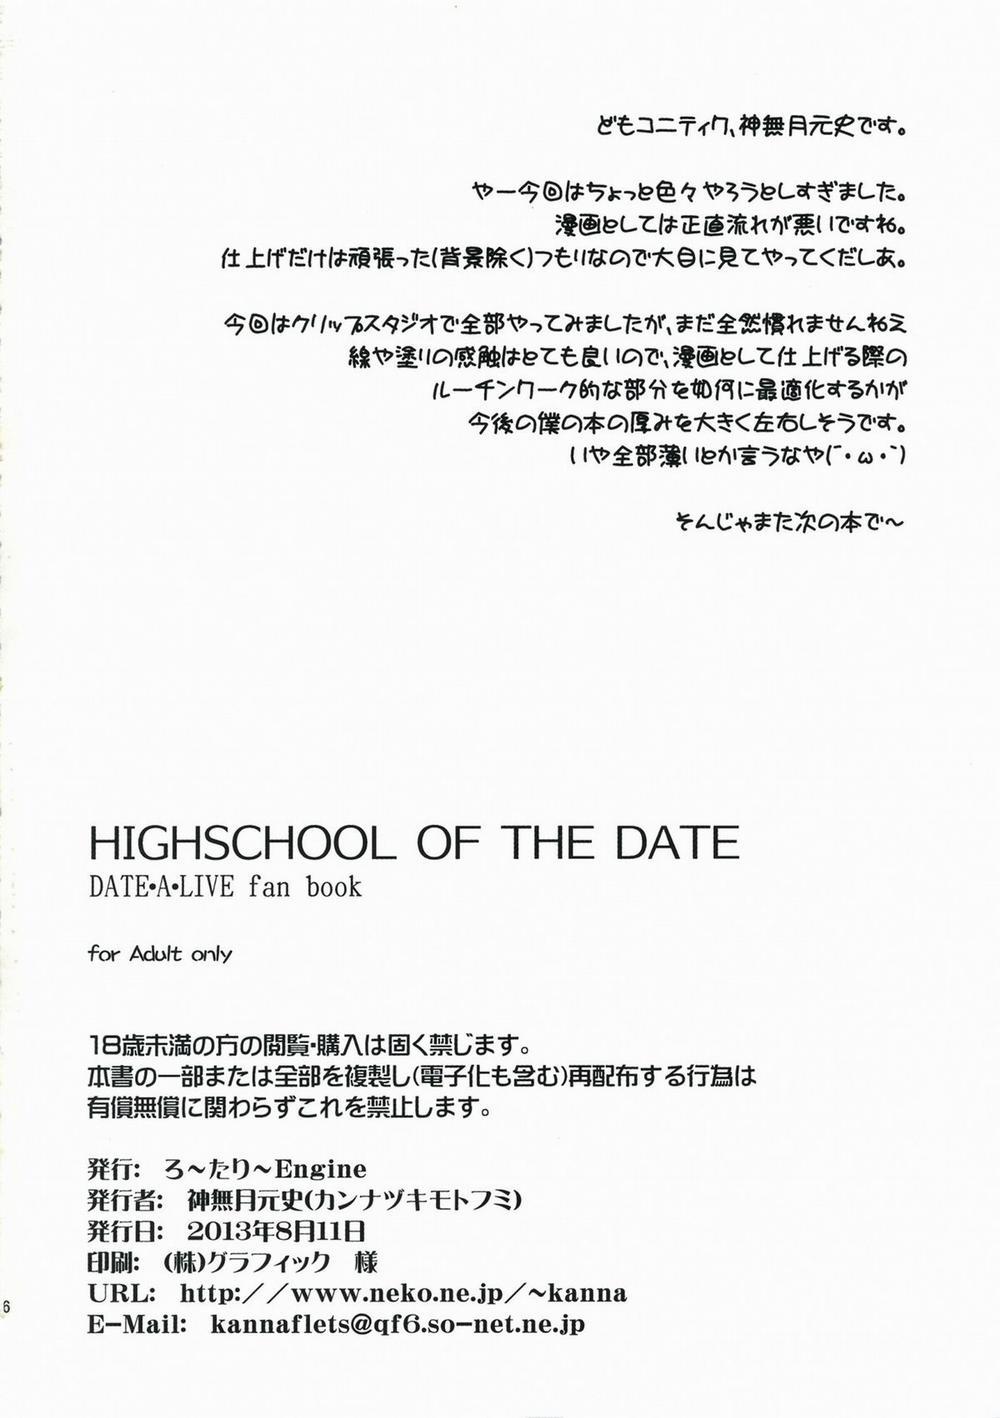 どもコニティク、神無月元史です。
やー今回はちょっと色々やろうとしすぎました。
漫画としては正直流れが悪いですね。
仕上げだけは頑張った(背景除く)つもりなので大目に見てやってくだしあ。
今回はクリップスタジオで全部やってみましたが、まだ全然慣れませんねえ
線や塗りの感触はとても良いので、漫画として仕上げる際の
ルーチンワーク的な部分を如何に最適化するかが
今後の僕の本の厚みを大きく左右しそうです。
いや全部薄いとか言うなや(´・ω・`)
そんじゃまた次の本で～
HIGHSCHOOL OF THE DATE
DATE・A・LIVE fan book
for Adult only
18歳未満の方の閲覧・購入は固く禁じます。
本書の一部または全部を複製し(電子化も含む)再配布する行為は
有償無償に関わらずこれを禁止します。
発行: ろ～たり～Engine
発行者: 神無月元史(カンナヅキモトフミ)
発行日: 2013年8月11日
印刷: (株)グラフィック 様
URL: http://www.neko.ne.jp/~kanna
E-Mail: kannaflets@qf6.so-net.ne.jp
6